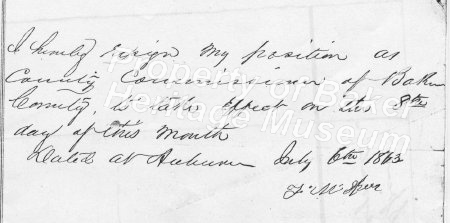 I hereby resign my position as
County Commissioner of Baker
County, to take effect on the 8th
day of this month
Dated at Auburn July 6th 1863
Property of Baker
Heritage Museum